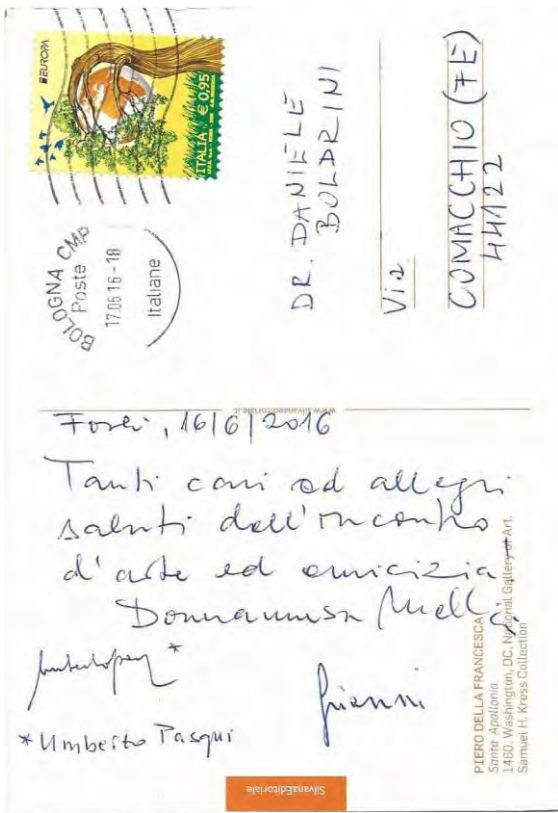 EUROPA
ITALIA € 0,95
BOLOGNA CMP
Poste
17.06.16-18
Italiane
DR. DANIELE
BOLDRINI
Via
COMACCHIO (FE)
44122
www.silvanaeditoriale.it
Forlì, 16/6/2016
Tanti cari ed allegri
saluti dall'incontro
d'arte ed amicizia
Gianni
* Umberto Pasqui
PIERO DELLA FRANCESCA
Santa Apollonia
1460, Washington, DC, National Gallery of Art,
Samuel H. Kress Collection
SilvanaEditoriale